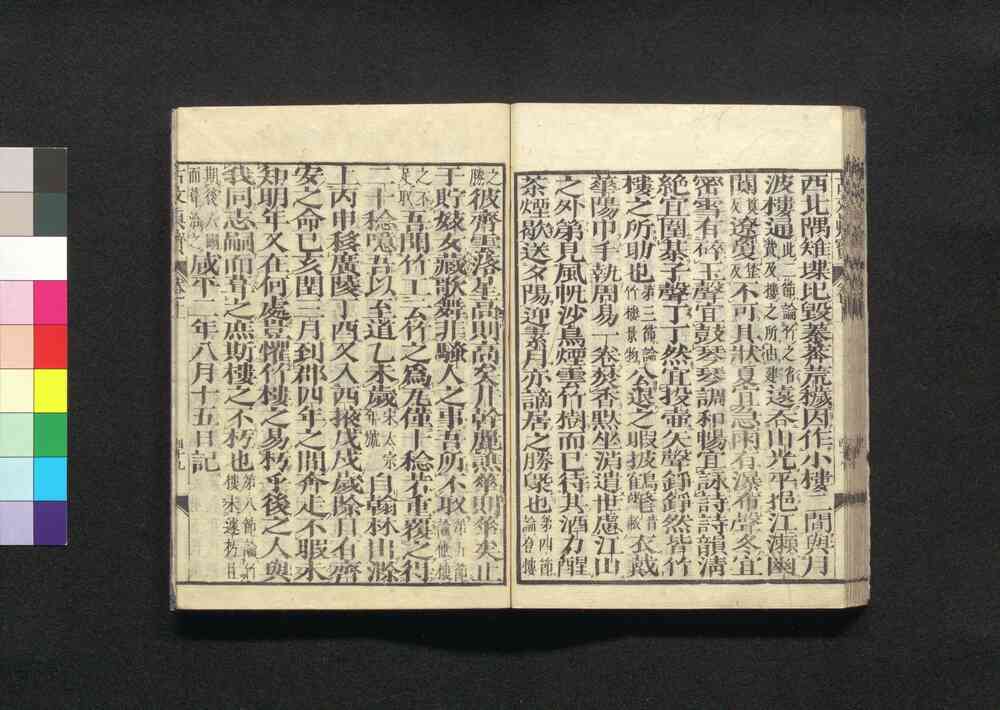 西北隅雉堞圮毀蓁莽荒穢因作小樓二間與月
波樓通此二節論竹之省費及樓之所由建遠吞山光平挹江瀨幽
闃遼夐不可具狀夏宜急雨有瀑布聲冬宜
密雪有碎玉聲宜鼓琴琴調和暢宜詠詩詩韻清
絕宜圍棊子聲丁丁然宜投壺矢聲錚錚然皆竹
樓之所助也第三節論竹樓景物公退之暇披鶴氅衣戴
華陽巾手執周易一卷焚香黙坐消遣世慮江山
之外第見風帆沙鳥煙雲竹樹而已待其酒力醒
茶煙歇送夕陽迎素月亦謫居之勝槩也第四節論登樓
之勝彼齊雲落星高則高矣井幹麗譙華則華矣止
于貯妓女藏歌舞非騷人之事吾所不取第五節論他樓
之不足取吾聞竹工云竹之爲瓦僅十稔若重覆之得
二十稔噫吾以至道乙未歲宋太宗年號自翰林出滁
上丙申移廣陵丁酉又入西掖戊戌歲除日有齊
安之命己亥閏三月到郡四年之間奔走不暇未
知明年又在何處豈懼竹樓之易朽乎後之人與
我同志嗣而葺之庶斯樓之不朽也第八節論竹樓未遽朽且
期後人嗣而葺治之咸平二年八月十五日記
古文真寳
四十九